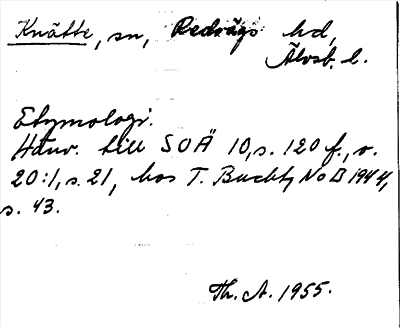 Knätte, sn, Redvägs hd,
Älvsb. l.
Etymologi.
Hänv. till SOÄ 10, s. 120 f., o.
20:1, s. 21, hos T. Bucht, NoB 1944,
s. 43.
Th. A. 1955.